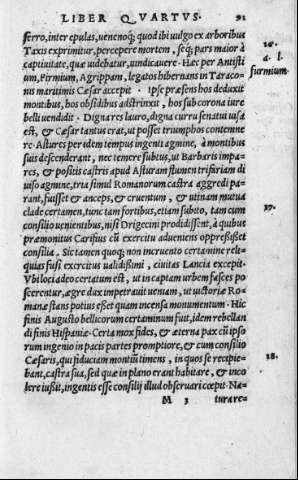 LIBER QVARTVS. 91
ferro, inter epulas, uenenoq; quod ibi uulgo ex arboribus
Taxis exprimitur, percepere mortem, seq; pars maior à
captiuitate, quæ uidebatur, uindicauere. Hæc per Antisti
um, Firmium, Agrippam, legatos hibernans in Taraco-
nis maritimis Cæsar accepit. Ipse præsens hos deduxit
montibus, hos obsidibus adstrinxit, hos sub corona iure
belli uendidit. Digna res lauro, digna curru senatui uisa
est, & Cæsar tantus erat, ut posset triumphos contemne
re. Astures per idem tempus ingenti agmine, à montibus
suis descenderant, nec temere subitus, ut Barbaris impa-
res, & positis castris apud Asturam flumen trifariam di
uiso agmine, tria simul Romanorum castra aggredi pa-
rant, fuisset & anceps, & cruentum, & utinam mutua
clade certamen, tunc tam fortibus, etiam subito, tam cum
consilio uenientibus, nisi Drigecini prodidissent, à quibus
præmonitus Carisius cū exercitu adueniens oppressisset
consilia. Sic tamen quoq; non incruento certamine reli-
quias fusi exercitus ualidissimi, ciuitas Lancia excepit.
Vbi loci adeo certatum est, ut in captam urbem faces po
scerentur, ægre dux impetrauit ueniam, ut uictoriæ Ro-
manæ stans potius esset quam incensa monumentum. Hic
finis Augusto bellicorum certaminum fuit, idem rebellan
di finis Hispaniæ. Certa mox fides, & æterna pax cū ipso
rum ingenio in pacis partes promptiore, & cum consilio
Cæsaris, qui fiduciam montiū timens, in quos se recipie-
bant, castra sua, sed quæ in plano erant habitare, & inco
lere iußit, ingentis esse consilij illud obseruari cœpit. Na-
M 3 tura re=
26.
a. l.
firmium.
27.
28.